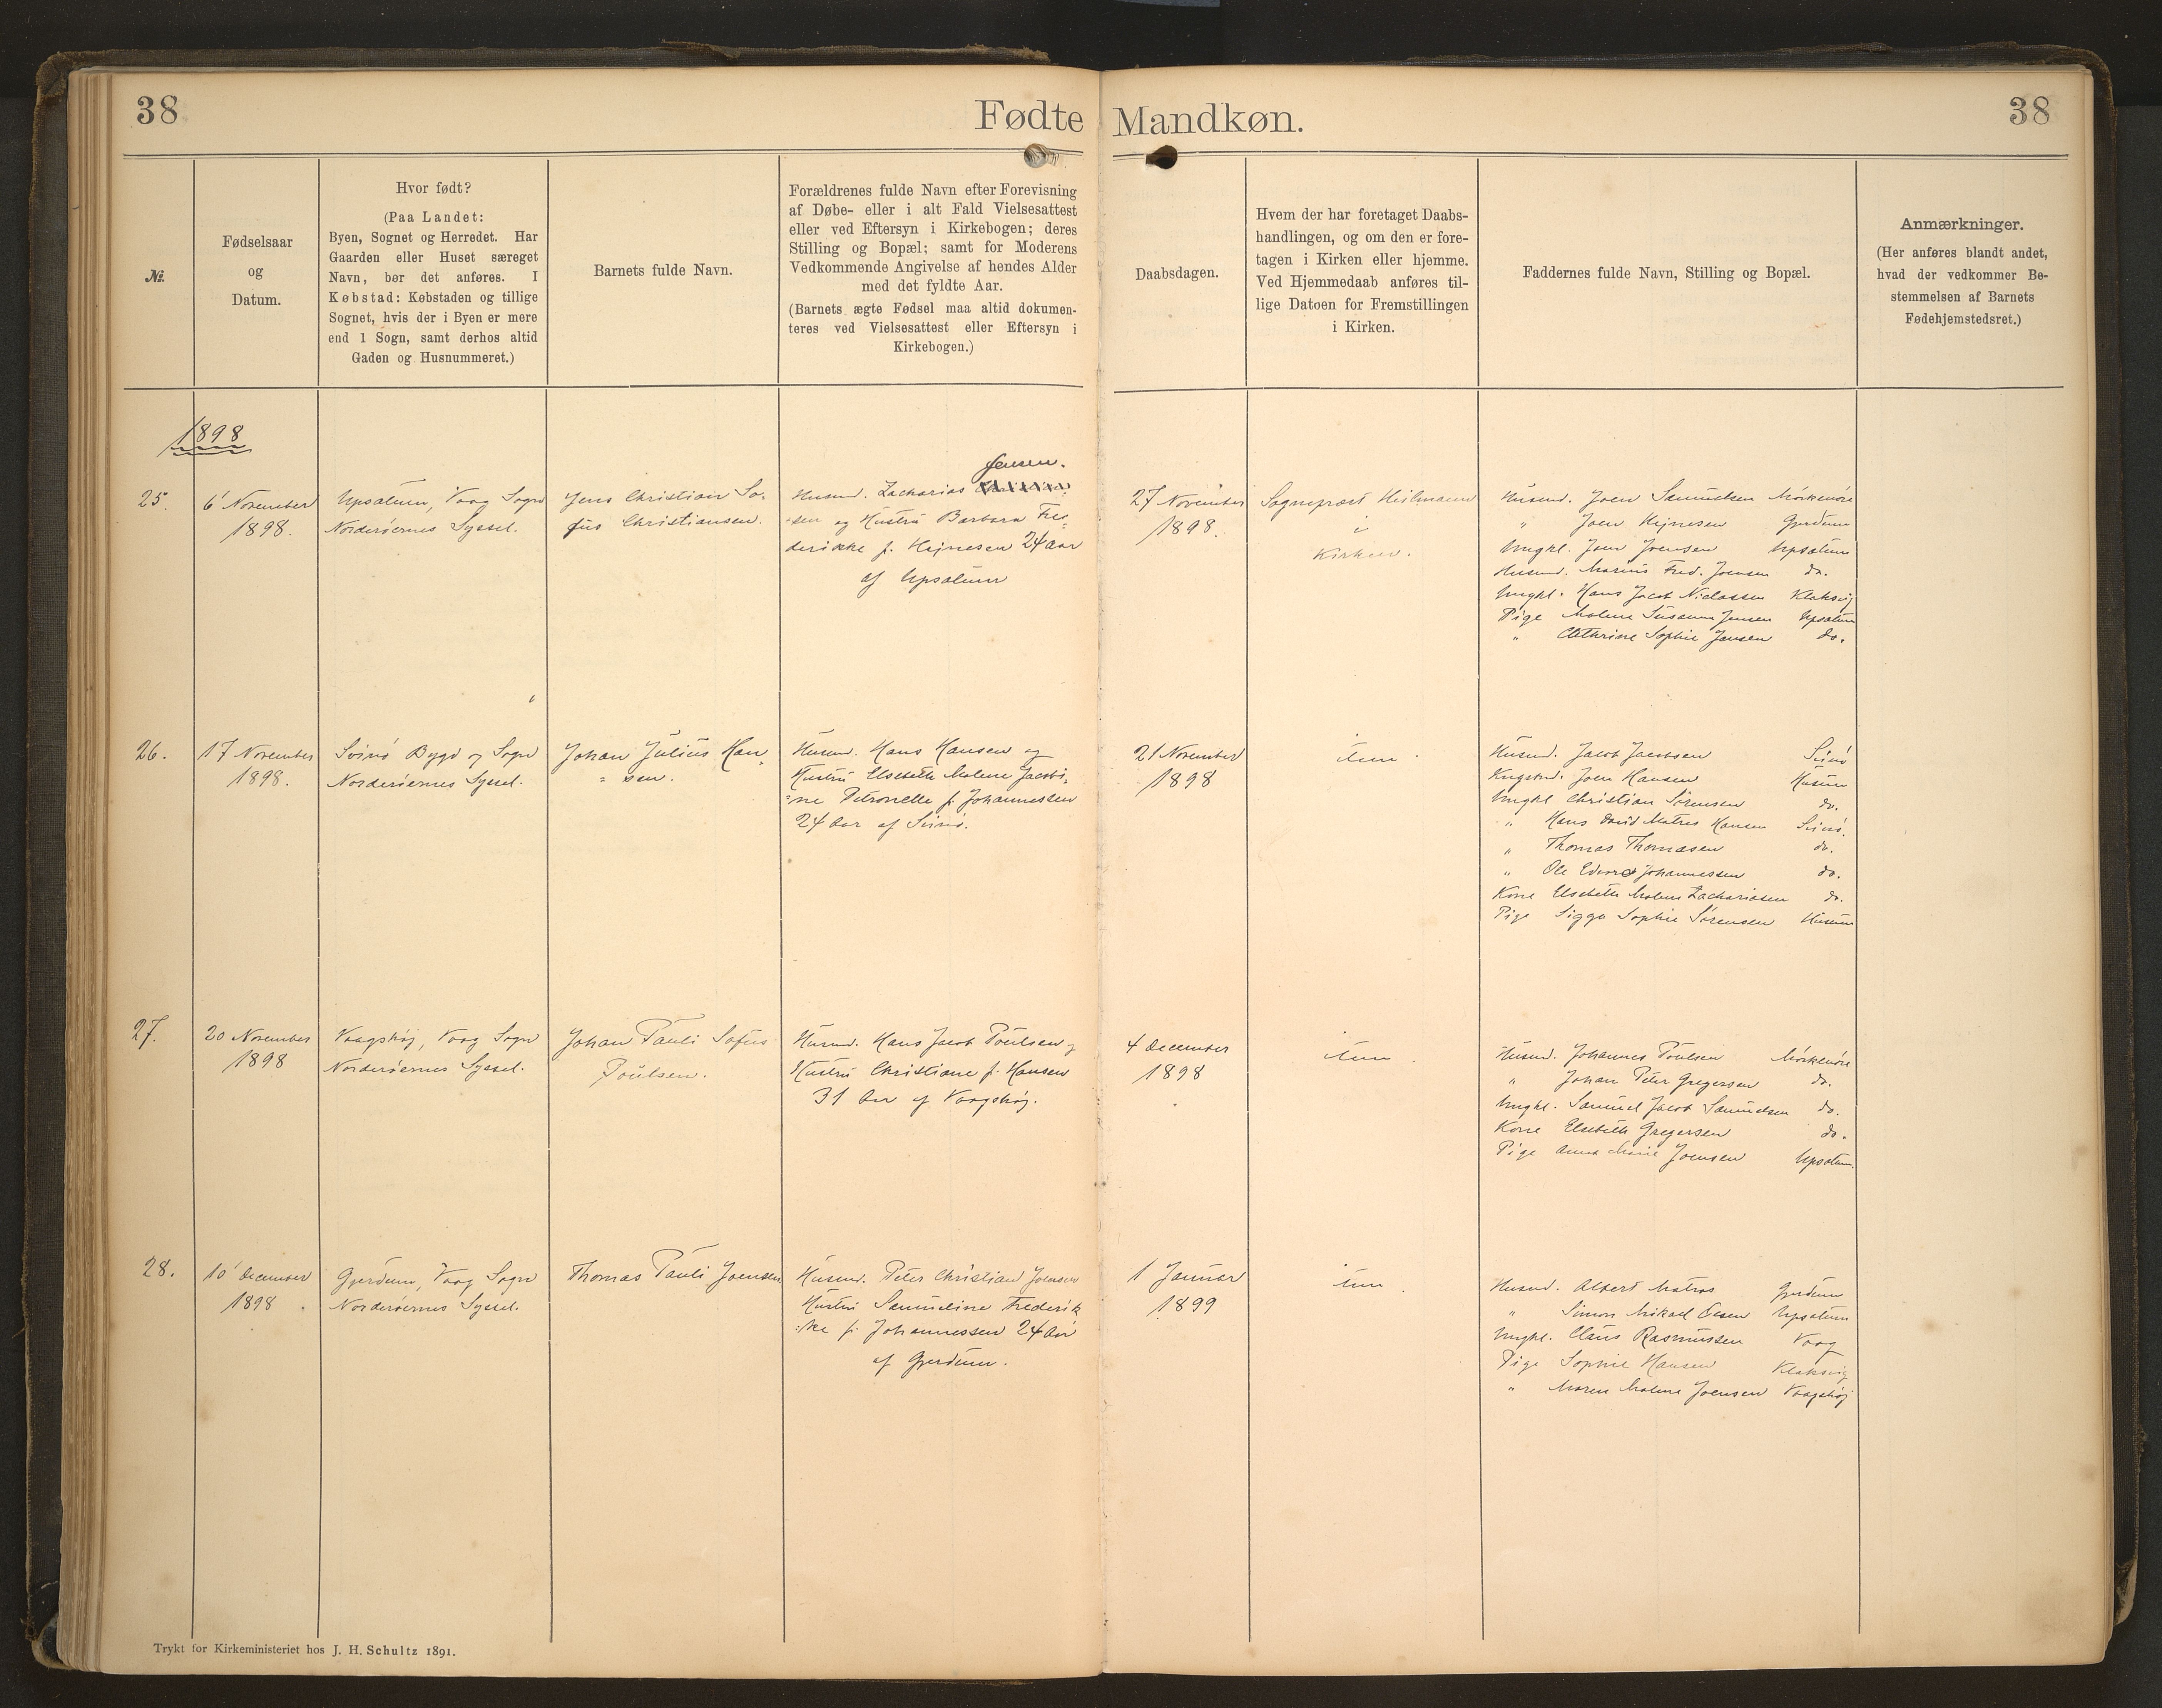 38
Fødte Mandkøn.
38
№.
Fødselsaar
og
Datum.
Hvor født?
(Paa Landet:
Byen, Sognet og Herredet. Har
Gaarden eller Huset særeget
Navn, bør det anføres. I
Købstad: Købstaden og tillige
Sognet, hvis der i Byen er mere
end 1 Sogn, samt derhos altid
Gaden og Husnummeret.)
Barnets fulde Navn.
Forældrenes fulde Navn efter Forevisning
af Døbe- eller i alt Fald Vielsesattest
eller ved Eftersyn i Kirkebogen; deres
Stilling og Bopæl; samt for Moderens
Vedkommende Angivelse af hendes Alder
med det fyldte Aar.
(Barnets ægte Fødsel maa altid dokumen-
teres ved Vielsesattest eller Eftersyn i
Kirkebogen.)
Daabsdagen.
Hvem der har foretaget Daabs-
handlingen, og om den er fore-
tagen i Kirken eller hjemme.
Ved Hjemmedaab anføres til-
lige Datoen for Fremstillingen
i Kirken.
Faddernes fulde Navn, Stilling og Bopæl.
Anmærkninger.
(Her anføres blandt andet,
hvad der vedkommer Be-
stemmelsen af Barnets
Fødehjemstedsret.)
1898
25.
6 November
1898.
Upsalum, Vaag Sogn
Norderöernes Syssel.
Jens Christian So-
fus Christiansen.
Jensen.
Husmd. Zacharias
sen og Hustru Barbara Fre-
derikke f. Hejnesen 24 Aar
af Upsalum
27 November
1898.
Sognepræst Heilmann
i
Kirken.
Husmd. Joen Samuelsen Mörkenöre
" Joen Hejnesen Gjerdum
Ungkl. Joen Joensen Upsalum
Husmd. Marius Fred. Joensen do.
Ungkl. Hans Jacob Niclassen Klaksvig
Pige Malene Susanne Jensen Upsalum
" Cathrine Sophie Jensen do.
26.
17 November
1898.
Svinö Bygd og Sogn
Norderöernes Syssel.
Johan Julius Han-
= sen.
Husmd. Hans Hansen og
Hustru Elsebeth Malene Jacobi-
=ne Petronelle f. Johannessen
24 Aar af Svinö.
21 November
1898
item
Husmd. Jacob Jacobsen Svinö
Kngsbd. Joen Hansen Husum
Ungkl Christian Sörensen do.
" Hans David Matras Hansen Svinö.
" Thomas Thomasen do.
" Ole Edvard Johannessen do.
Kone Elsebeth Malene Zachariasen do.
Pige Sigga Sophie Sörensen Husum
27.
20 November
1898
Vaagshöj, Vaag Sogn
Norderöernes Syssel.
Johan Pauli Sofus
Poulsen.
Husmd. Hans Jacob Poulsen og
Hustru Christiane f. Hansen
31 Aar af Vaagshöj.
4 December
1898
item
Husmd. Johannes Poulsen Mörkenöre
" Johan Peter Gregersen do.
Ungkl. Samuel Jacob Samuelsen do.
Kone Elsebeth Gregersen do.
Pige Anna Marie Joensen Upsalum.
28.
10 December
1898
Gjerdum, Vaag Sogn
Norderöernes Syssel.
Thomas Pauli Joensen
Husmd. Peter Christian Joensen
Hustru Samueline Frederik
=ke f. Johannessen 24 Aar
af Gjerdum.
1 Januar
1899
item
Husmd. Albert Matras Gjerdum
" Simon Mikael Olsen Upsalum
Ungkl. Claus Rasmussen Vaag
Pige Sophie Hansen Klaksvig
" Maren Malene Joensen Vaagshöj
Trykt for Kirkeministeriet hos J. H. Schultz 1891.